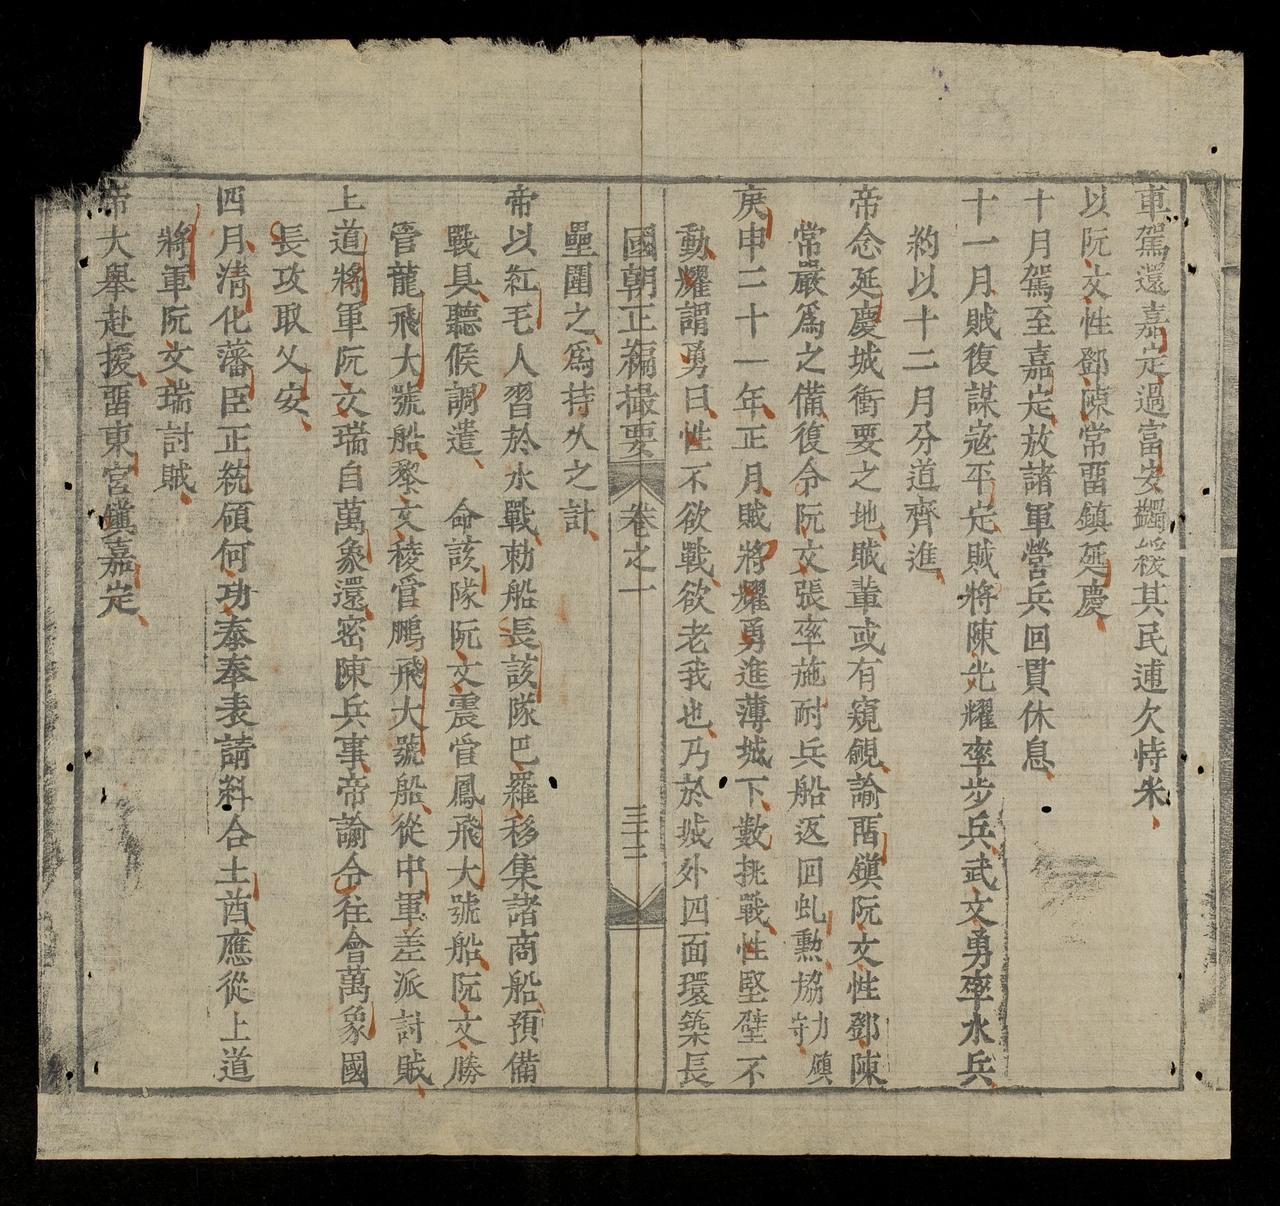 車駕還嘉定過富安蠲緩其民逋欠恃米
以阮文性鄧陳常畱鎮延慶
十月駕至嘉定放諸軍營兵回貫休息
十一月賊復謀寇平定賊將陳光耀率步兵武文勇率水兵
約以十二月分道齊進
帝念延慶城衝要之地賊輩或有窺覦諭畱鎮阮文性鄧陳
常嚴爲之備復令阮文張率施耐兵船返回虬勲協力鎮守
庚申二十一年正月賊將耀勇進薄城下數挑戰性堅壁不
動耀謂勇曰性不欲戰欲老我也乃於城外四面環築長
國朝正編撮要 卷之一 三十二
壘圍之爲持久之計
帝以紅毛人習於水戰勅船長該隊巴羅移集諸商船預備
戰具聽候調遣 命該隊阮文震管鳳飛大號船阮文勝
管龍飛大號船黎文稜管鵬飛大號船從中軍差派討賊
上道將軍阮文瑞自萬象還密陳兵事帝諭令往會萬象國
長攻取乂安
四月清化藩臣正統領何功泰奉表請糾合土酋應從上道
將軍阮文瑞討賊
帝大舉赴援畱東宮鎮嘉定